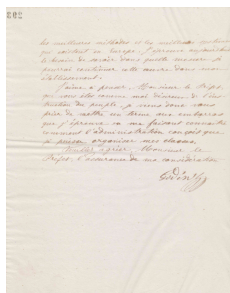 202
les meilleures méthodes et les meilleurs systèmes
qui existent en Europe. J'éprouve aujourd'hui
le besoin de savoir dans quelle mesure je
pourrai continuer cette œuvre dans mon
établissement.
J'aime à penser, Monsieur le Préfet,
que vous êtes comme moi désireux de l'ins
truction du peuple, je viens donc vous
prier de mettre un terme aux embarras
que j'éprouve en me faisant connaître
comment l'administration conçoit que
je puisse organiser mes classes.
Veuillez agréer, Monsieur le
Préfet, l'assurance de ma considération
Godin